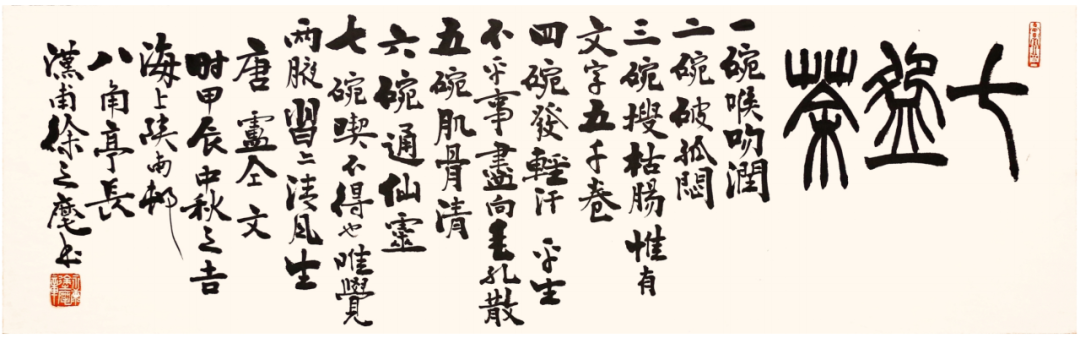 七盌茶
一碗喉吻潤
二碗破孤悶
三碗搜枯腸惟有
文字五千卷
四碗發輕汗平生
不平事盡向毛孔散
五碗肌骨清
六碗通仙靈
七碗喫不得也唯覺
兩腋習々清风生
唐盧仝文
时甲辰中秋之吉
海上陝南邨
八角亭長
漢甫徐之书